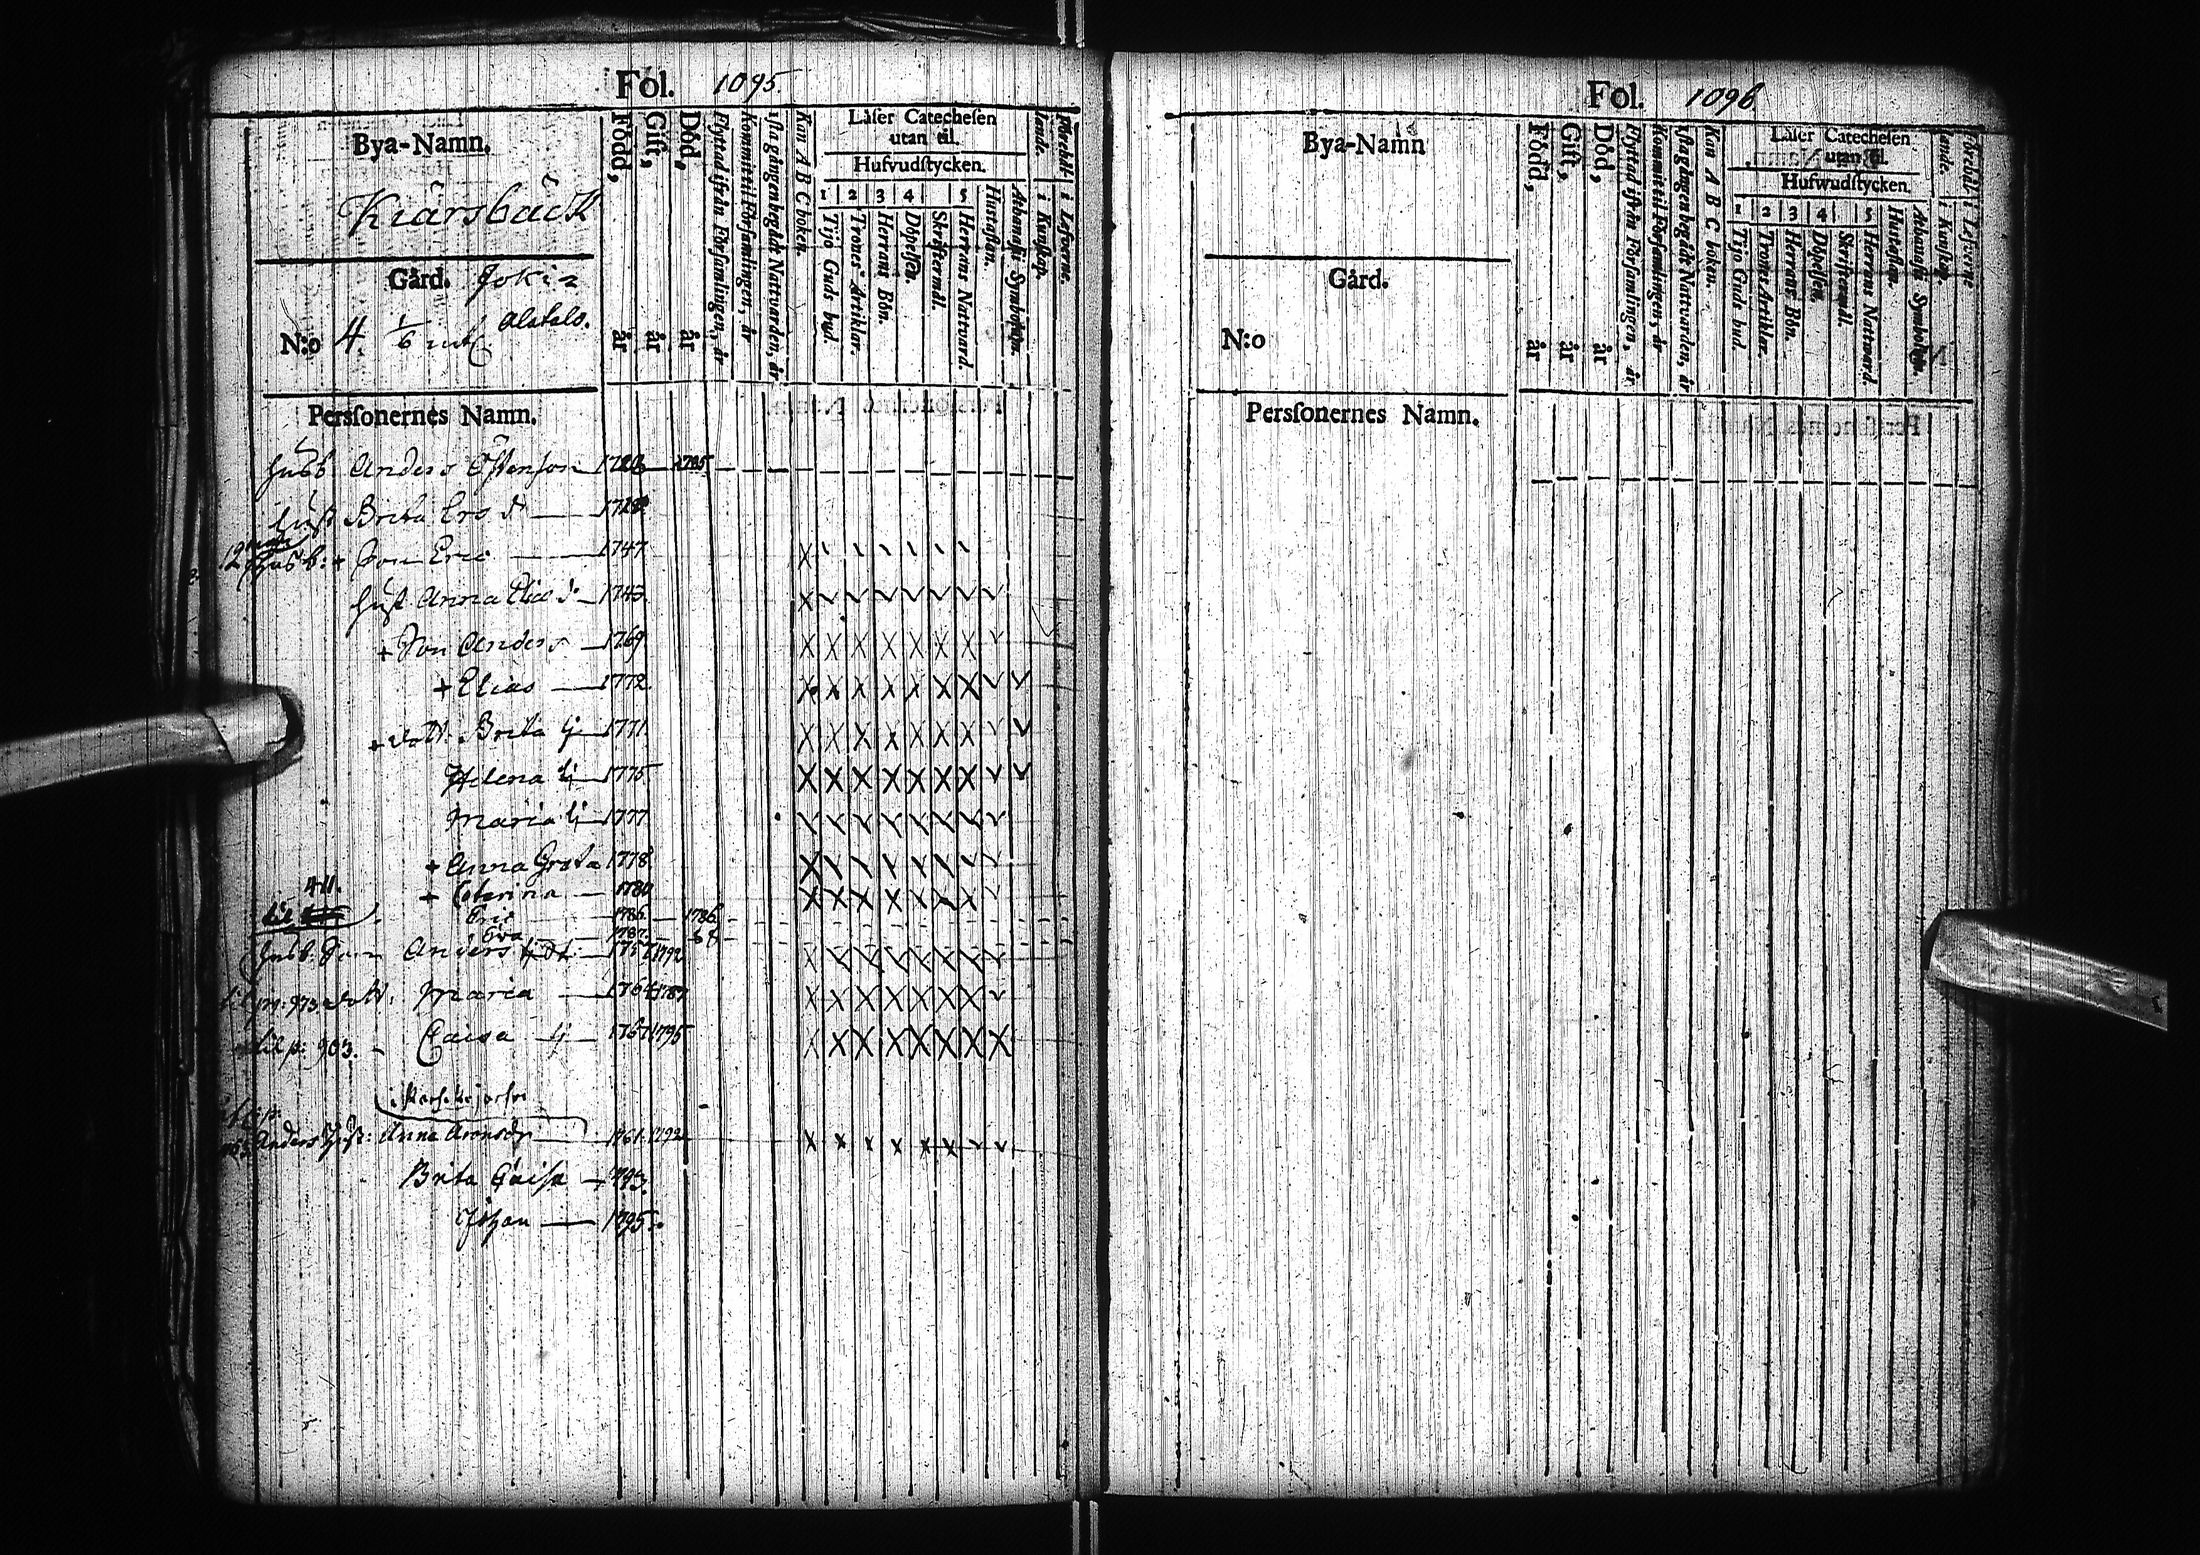 Fol. 1095.
Bya-Namn.
Kiärsbäck
Gård. Jokis
Alatalo.
N:o 4. 1/6 mtl
Född, år
Gift, år
Död, år
Flyttad ifrån Församlingen, år
Kommit til Församlingen, år
1sta gången begådt Nattvarden, år
Kan A B C boken.
Låser Catechesen
utan til.
Hufvudstycken.
1 2 3 4 5
Tijo Guds bud.
Trones Artiklar.
Herrans Bön.
Döpelsen.
Skriftermål.
Herrans Nattvard.
Hustaflan.
Athanasii Symbolum.
Förehållande.
i Kunskap.
i Lefverne.
Persfonernes Namn.
Husb Anders 1795
Hust Brita Ers d
Husb: + Son Eric 1747
Hust Anna Elias d. 1743.
+ Son Anders 1769
+ Elias 1772.
+ Dott. Brita 1771.
Helena 1775
Maria 1777
+ Anna Greta 1778
411.
+ Caterina 1780
til
Eric 1786. 1786.
Eva 1787.
Husb. Son Anders 1757 1792
til p. 973 Dott. Maria 1764 1787
til p: 903. Caisa 1767 1795
Anders Hust: Anna Aronsdr 1761. 1792
Brita Caisa 1793.
Johan 1795.
Fol. 1096
Bya-Namn
Gård.
N:o
Född, år
Gift, år
Död, år
Flyttad ifrån Församlingen, år
Kommit til Församlingen, år
1sta gången begådt Nattvarden, år
Kan A B C boken.
Låser Catechesen
utan til.
Hufwudstycken.
1 2 3 4 5
Tijo Guds bud.
Trones Artiklar.
Herrans Bön.
Döpelsen.
Skriftermål.
Herrans Nattward.
Hustaflan.
Athanasii Symbolum.
Förehållande.
i Kunskap.
i Lefverne
Persfonernes Namn.